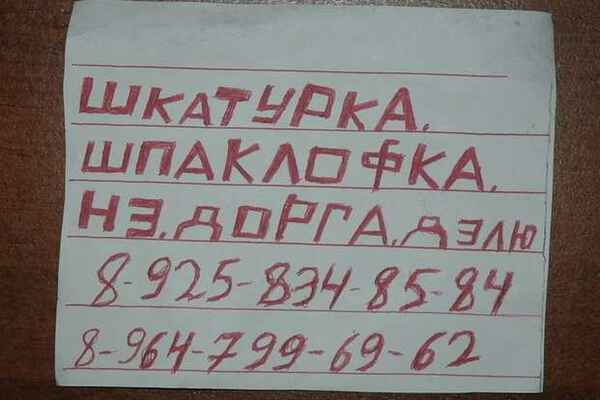 ШКАТУРКА.
ШПАКЛОФКА.
НЭ. ДОРГА. ДЭЛЮ
8-925-834-85-84
8-964-799-69-62